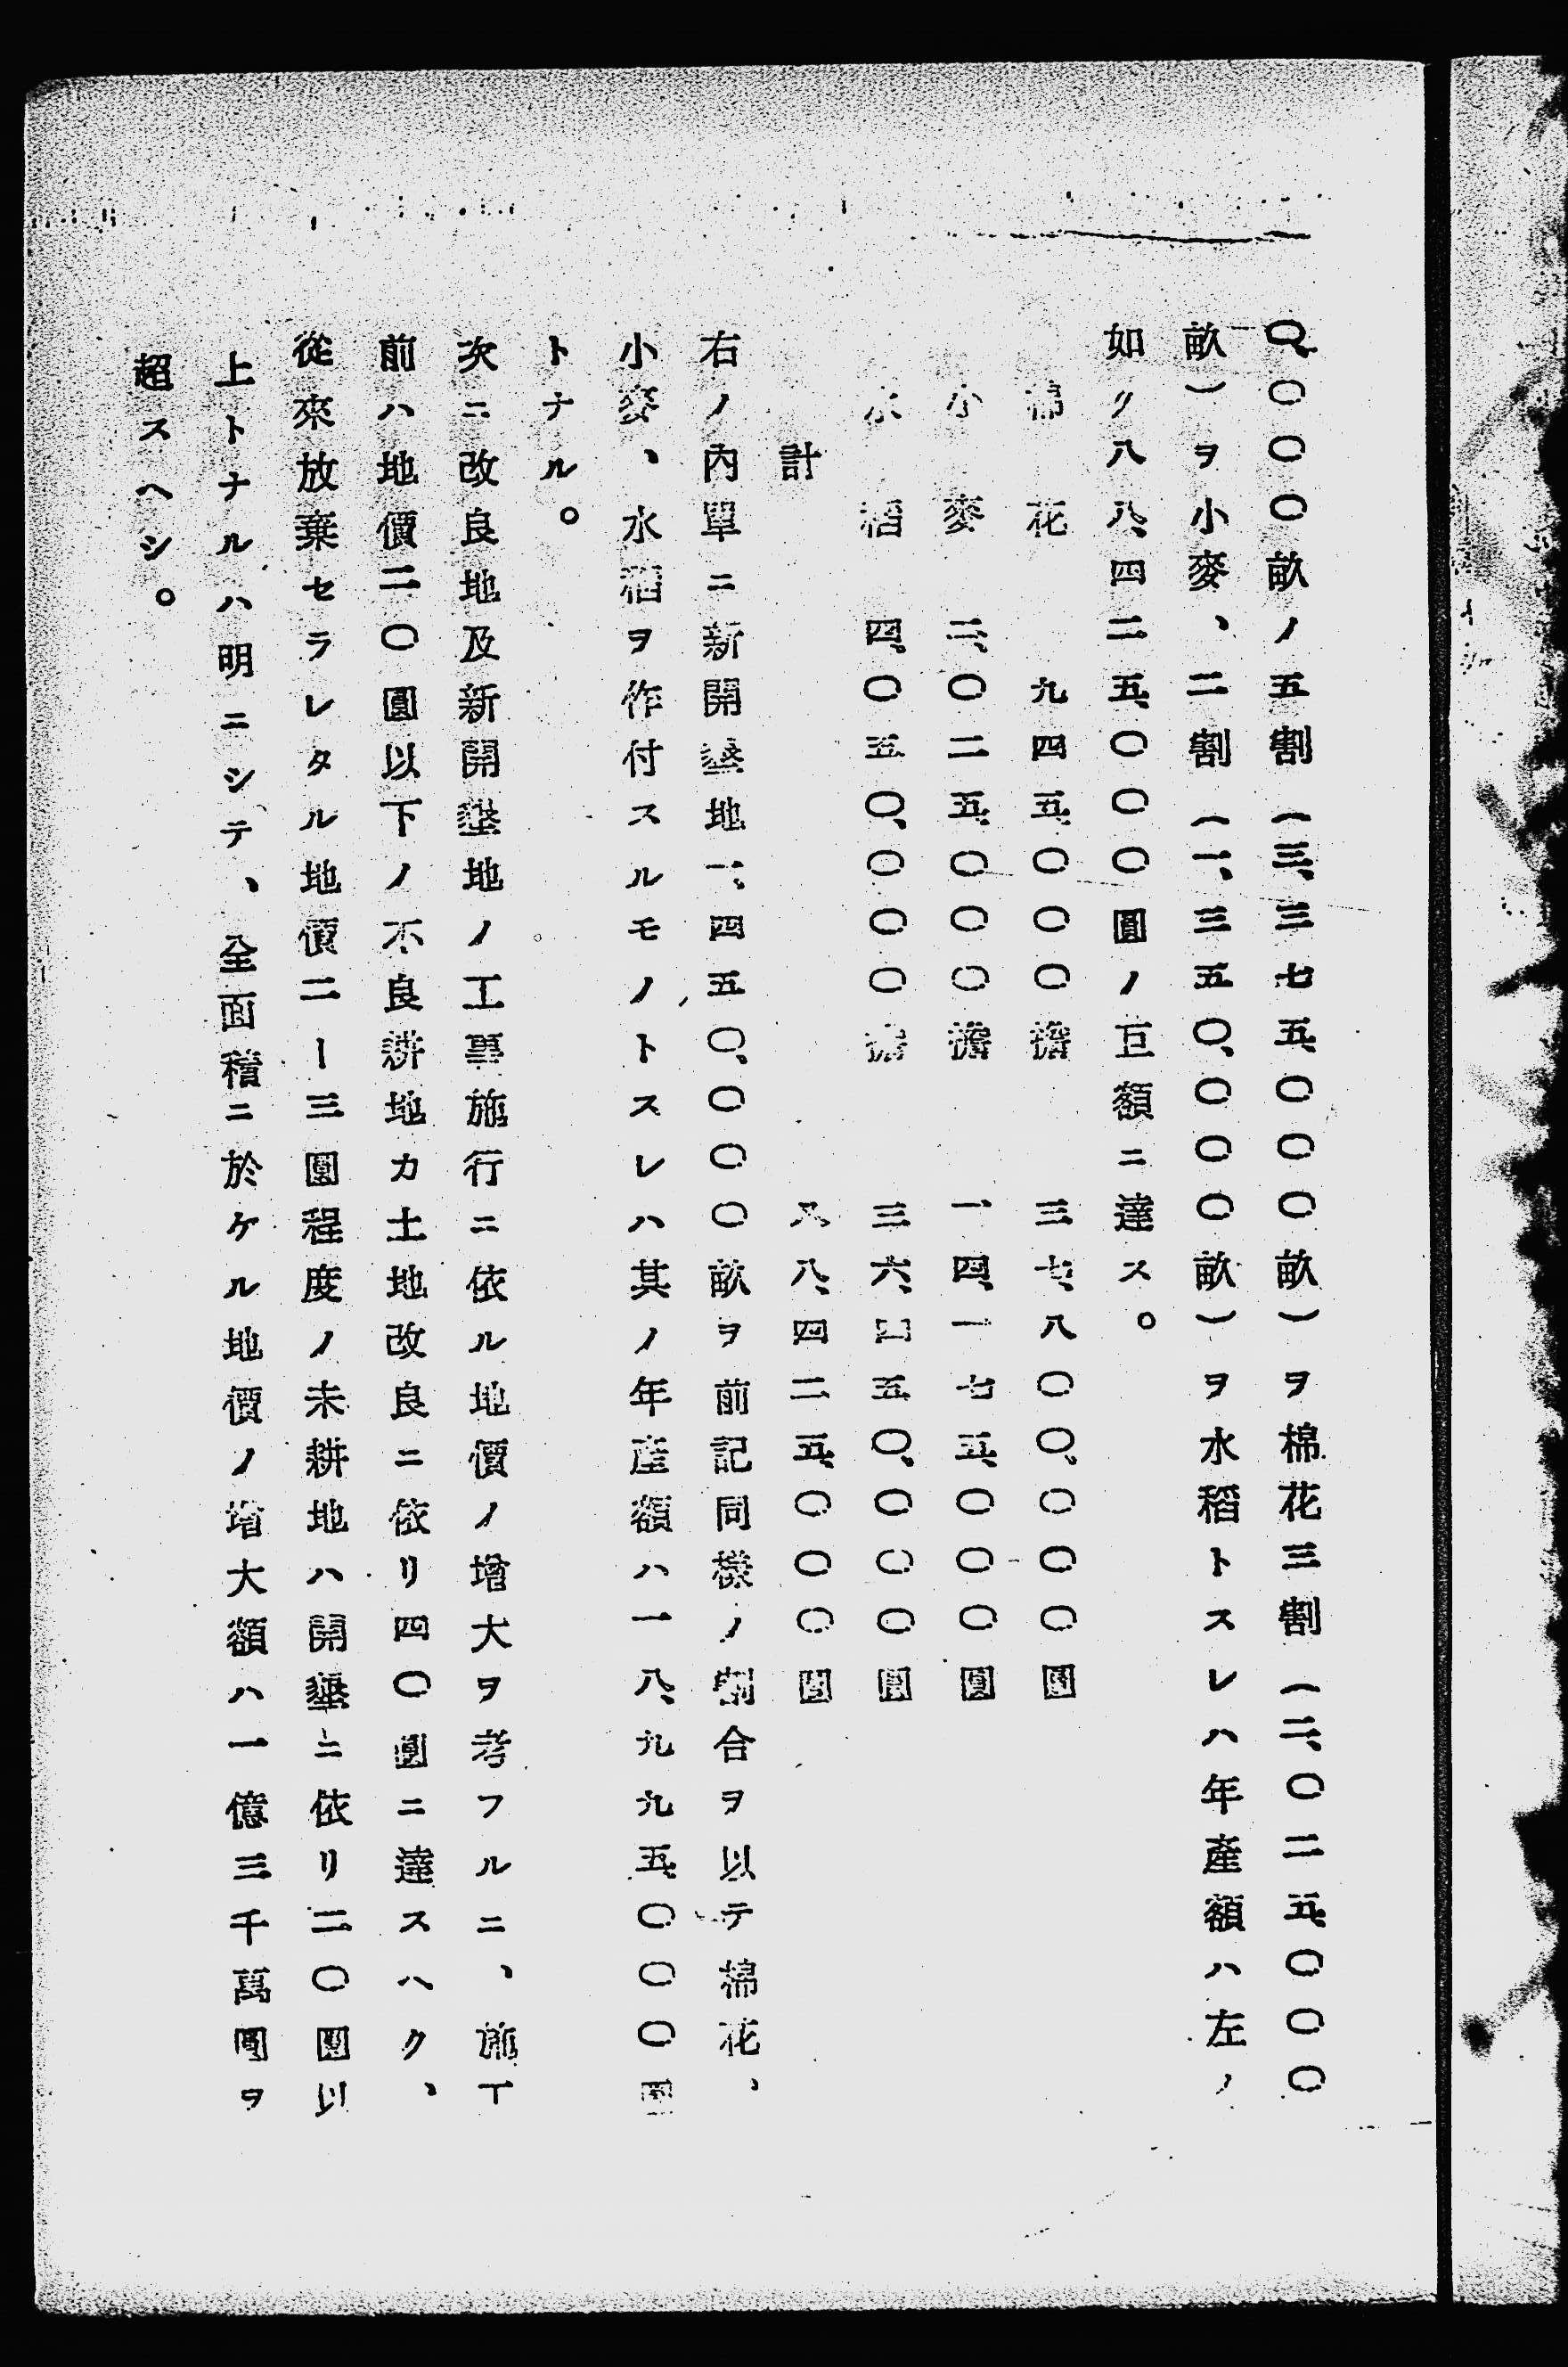 〇、〇〇〇畝ノ五割（三、三七五、〇〇〇畝）ヲ棉花三割（二、〇二五、〇〇〇
畝）ヲ小麥、二割（一、三五〇、〇〇〇畝）ヲ水稻トスレハ年產額ハ左ノ
如ク八八、四二五、〇〇〇圓ノ巨額ニ達ス。
棉花 九四五、〇〇〇擔 三七、八〇〇、〇〇〇圓
小麥 二、〇二五、〇〇〇擔 一四、一七五、〇〇〇圓
水稻 四、〇五〇、〇〇〇擔 三六、四五〇、〇〇〇圓
計 八八、四二五、〇〇〇圓
右ノ內單ニ新開墾地一、四五〇、〇〇〇畝ヲ前記同樣ノ割合ヲ以テ棉花、
小麥、水稻ヲ作付スルモノトスレハ其ノ年產額ハ一八、九九五、〇〇〇圓
トナル。
次ニ改良地及新開墾地ノ工事施行ニ依ル地價ノ增大ヲ考フルニ、施工
前ハ地價二〇圓以下ノ不良耕地カ土地改良ニ依リ四〇圓ニ達スヘク、
從來放棄セラレタル地價二ー三圓程度ノ未耕地ハ開墾ニ依リ二〇圓以
上トナルハ明ニシテ、全面積ニ於ケル地價ノ增大額ハ一億三千萬圓ヲ
超スヘシ。